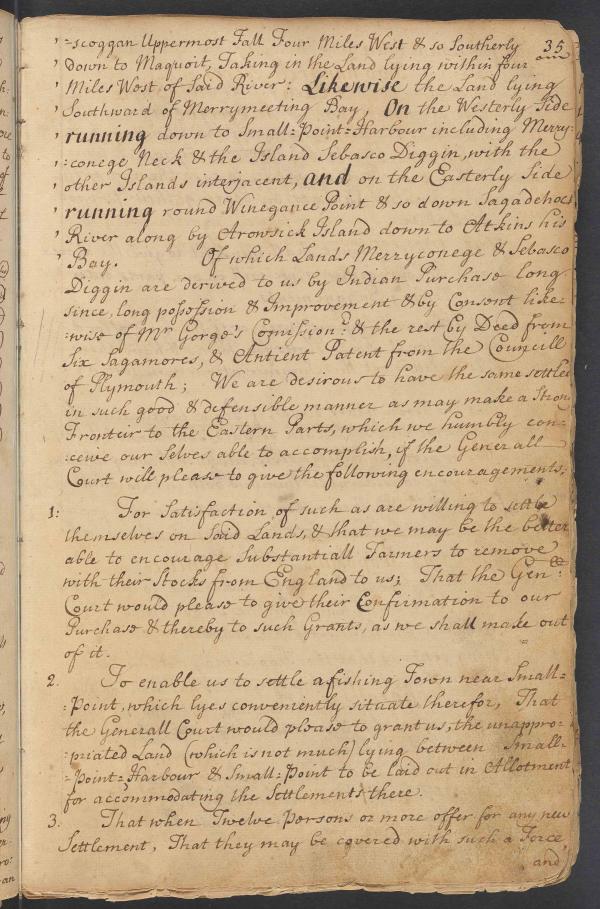 35
' =scoggan Uppermost Fall Four Miles West & so Southerly
' Down to Maquoit, Taking in the Land lying within four
' Miles West of Said River: Likewise the Land lying
' Southward of Merrymeeting Bay, On the Westerly Side
' running down to Small=Point=Harbour including Merry=
' :conege Neck & the Island Sebasco Diggin, with the
' other Islands interjacent, and on the Easterly Side
' running round Winegance Point & so down Sagadehock
' River along by Arowsick Island down to Atkins his
' Bay. Of which Lands Merryconege & Sebasco
Diggin are derived to us by Indian Purchase long
since, long possession & Improvement & by Consent like=
:wise of Mr Gorge's Comission.rs & the rest by Deed from
Six Sagamores, & Antient Patent from the Councill
of Plymouth; We are desirous to have the same settled
in such good & defensible manner as may make a Strong
Fronteir to the Eastern Parts, which we humbly con=
:ceive our Selves able to accomplish, if the Generall
Court will please to give the following encouragements;
1: For Satisfaction of such as are willing to settle
themselves on Said Lands, & that we may be the better
able to encourage Substantiall Farmers to remove
with their Stocks from England to us; That the Gen.ll
Court would please to give their Confirmation to our
Purchase & thereby to such Grants, as we shall make out
of it.
2. To enable us to settle a fishing Town near Small=
=Point, which lyes conveniently situate therefor, That
the Generall Court would please to grant us, the unappro=
:priated Land (which is not much) lying between Small=
=Point=Harbour & Small=Point to be laid out in Allotment
for accommodating the Settlements there.
3. That when Twelve Persons or more offer for any new
Settlement, That they may be covered with such a Force,
and